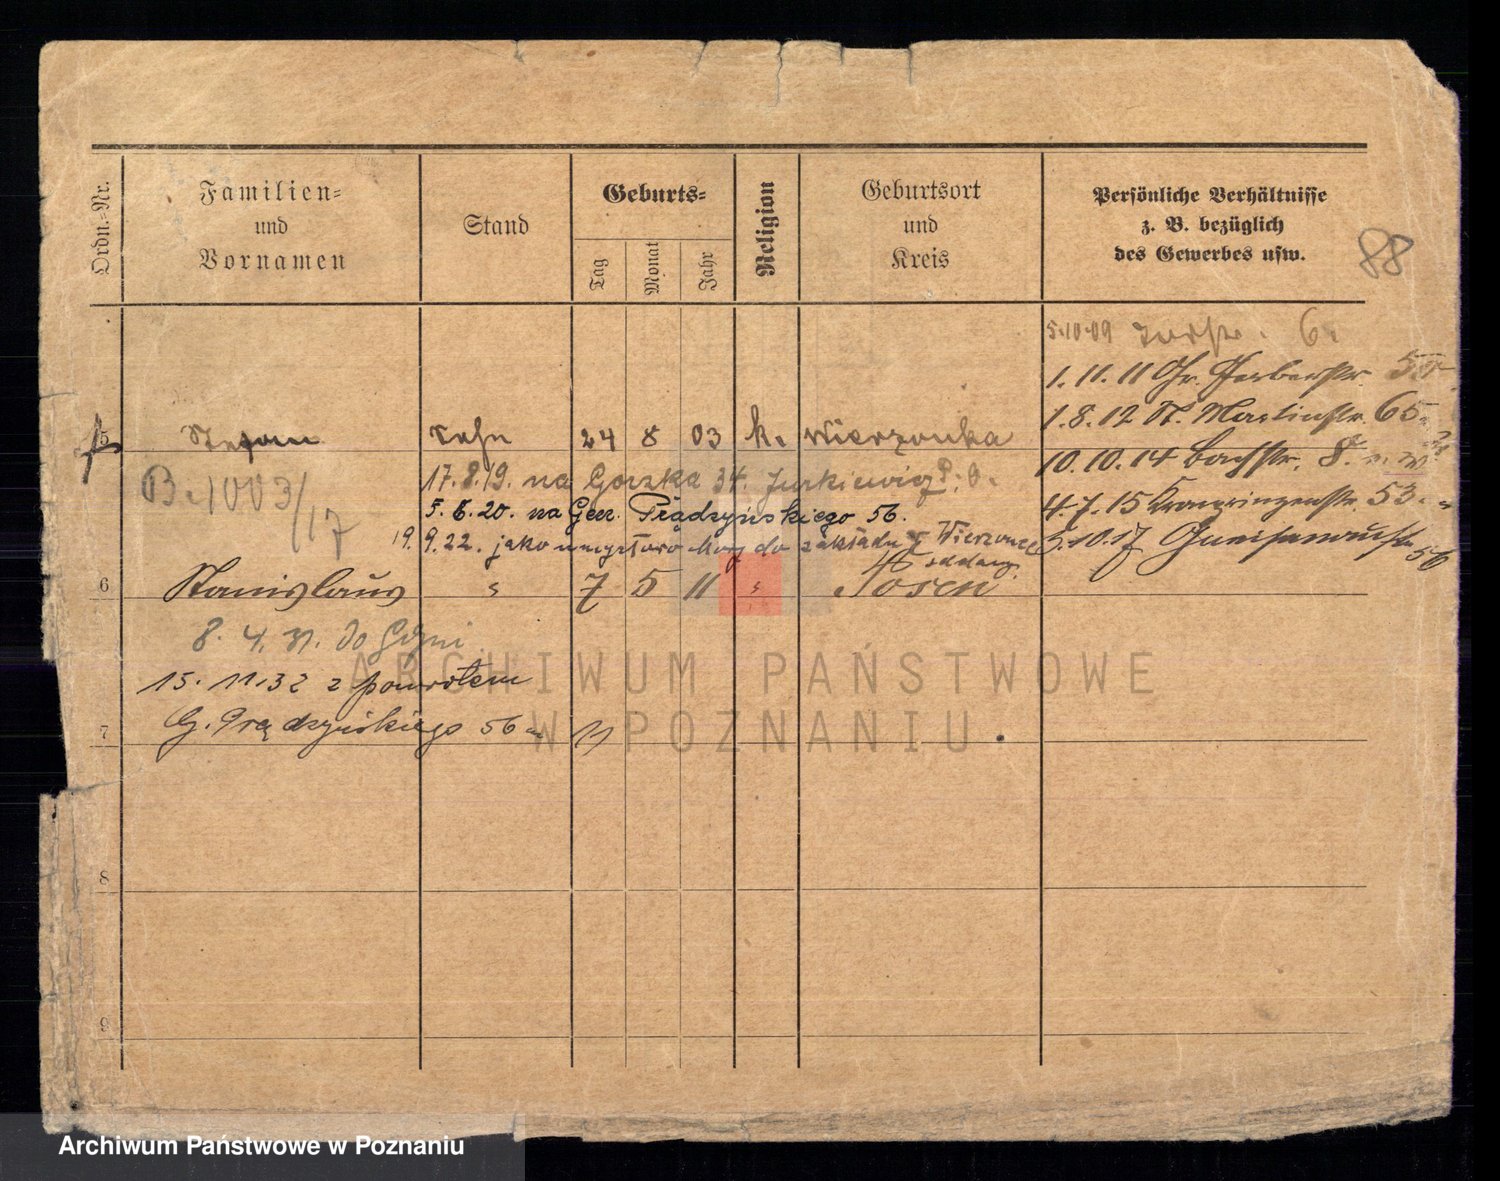 Ordn.-Nr.
Familien-
und
Vornamen
Stand
Geburts-
Tag
Monat
Jahr
Religion
Geburtsort
und
Kreis
Persönliche Verhältnisse
z. B. bezüglich
des Gewerbes usw.
88
5.10.09 6.
1.11.11 Gr. Gerberstr.
1.8.12 St. Martinstr. 65
10.10.14 Bachstr. 8.
4.7.15 Kronprinzenstr. 53.
5.10.17 Gneisenaustr. 56
5 Stefan Sohn 24 8 03 k. Wierzonka
B. 1003/17
17.8.19. na Gorzka 34.
5.6.20. na Gen. Prądzyńskiego 56.
19.9.22. jako umysłowo chory do zakładu
6 Stanislaus " 7 5 11 " Posen
8.4.31. do Gdyni
15.11.32 z powrotem
7 G. Prądzyńskiego 56
8
9
ARCHIWUM PAŃSTWOWE
W POZNANIU
Archiwum Państwowe w Poznaniu